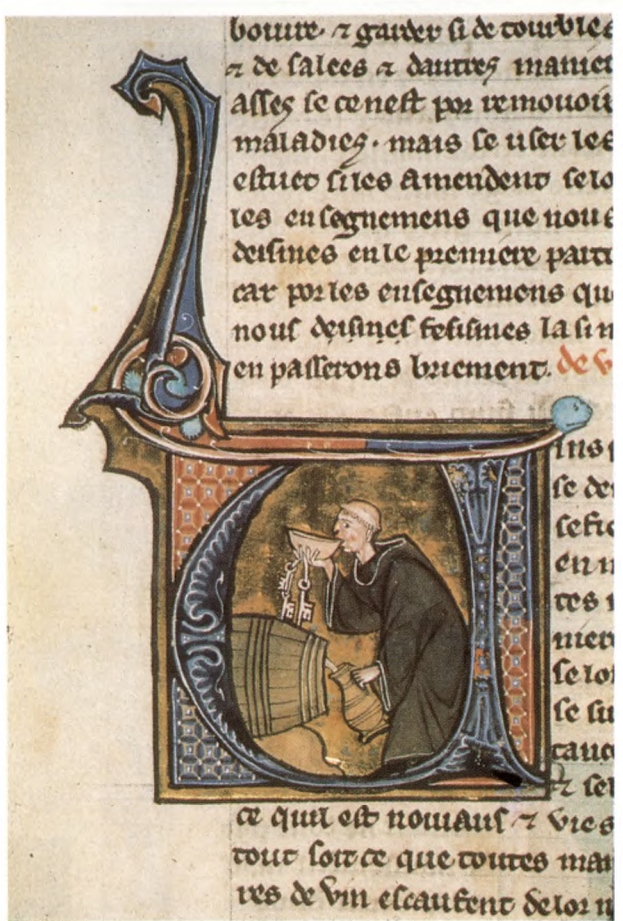 boiure. ⁊ garder si de tourbles
⁊ de salees ⁊ dautres manier
asses se ce nest por remouoir
maladies. mais se user les
estuet si les amendent selo
les ensegnemens que nous
desimes en le premiere parti
car por les ensegnemens que
nous desimes fesismes la fin
en passerons briement. de v
ins
se de
se
en
tes
niere
se lo
se su
cauc
⁊ se
ce quil est nouiaus ⁊ vies
tout soit ce que toutes man
res de vin escaufent de lor n